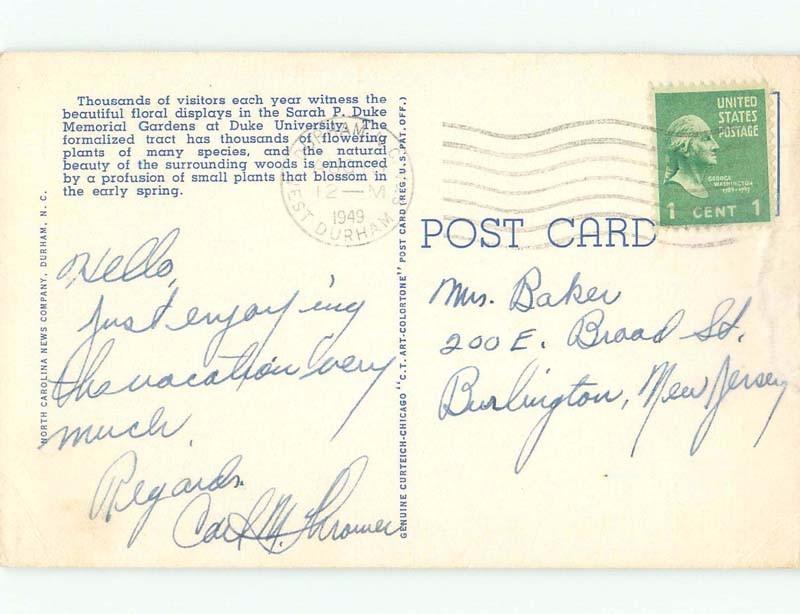 Thousands of visitors each year witness the
beautiful floral displays in the Sarah P. Duke
Memorial Gardens at Duke University. The
formalized tract has thousands of flowering
plants of many species, and the natural
beauty of the surrounding woods is enhanced
by a profusion of small plants that blossom in
the early spring.
NORTH CAROLINA NEWS COMPANY, DURHAM, N. C.
Hello,
Just enjoying
the vacation very
much.
Regards.
Carl M.
GENUINE CURTEICH-CHICAGO "C.T. ART-COLORTONE" POST CARD (REG. U.S. PAT. OFF.)
DURHAM
12—M
1949
WEST DURHAM
UNITED
STATES
POSTAGE
GEORGE
WASHINGTON
1789-1797
1 CENT 1
POST CARD
Mrs. Baker
200 E. Broad St.
Burlington, New Jersey